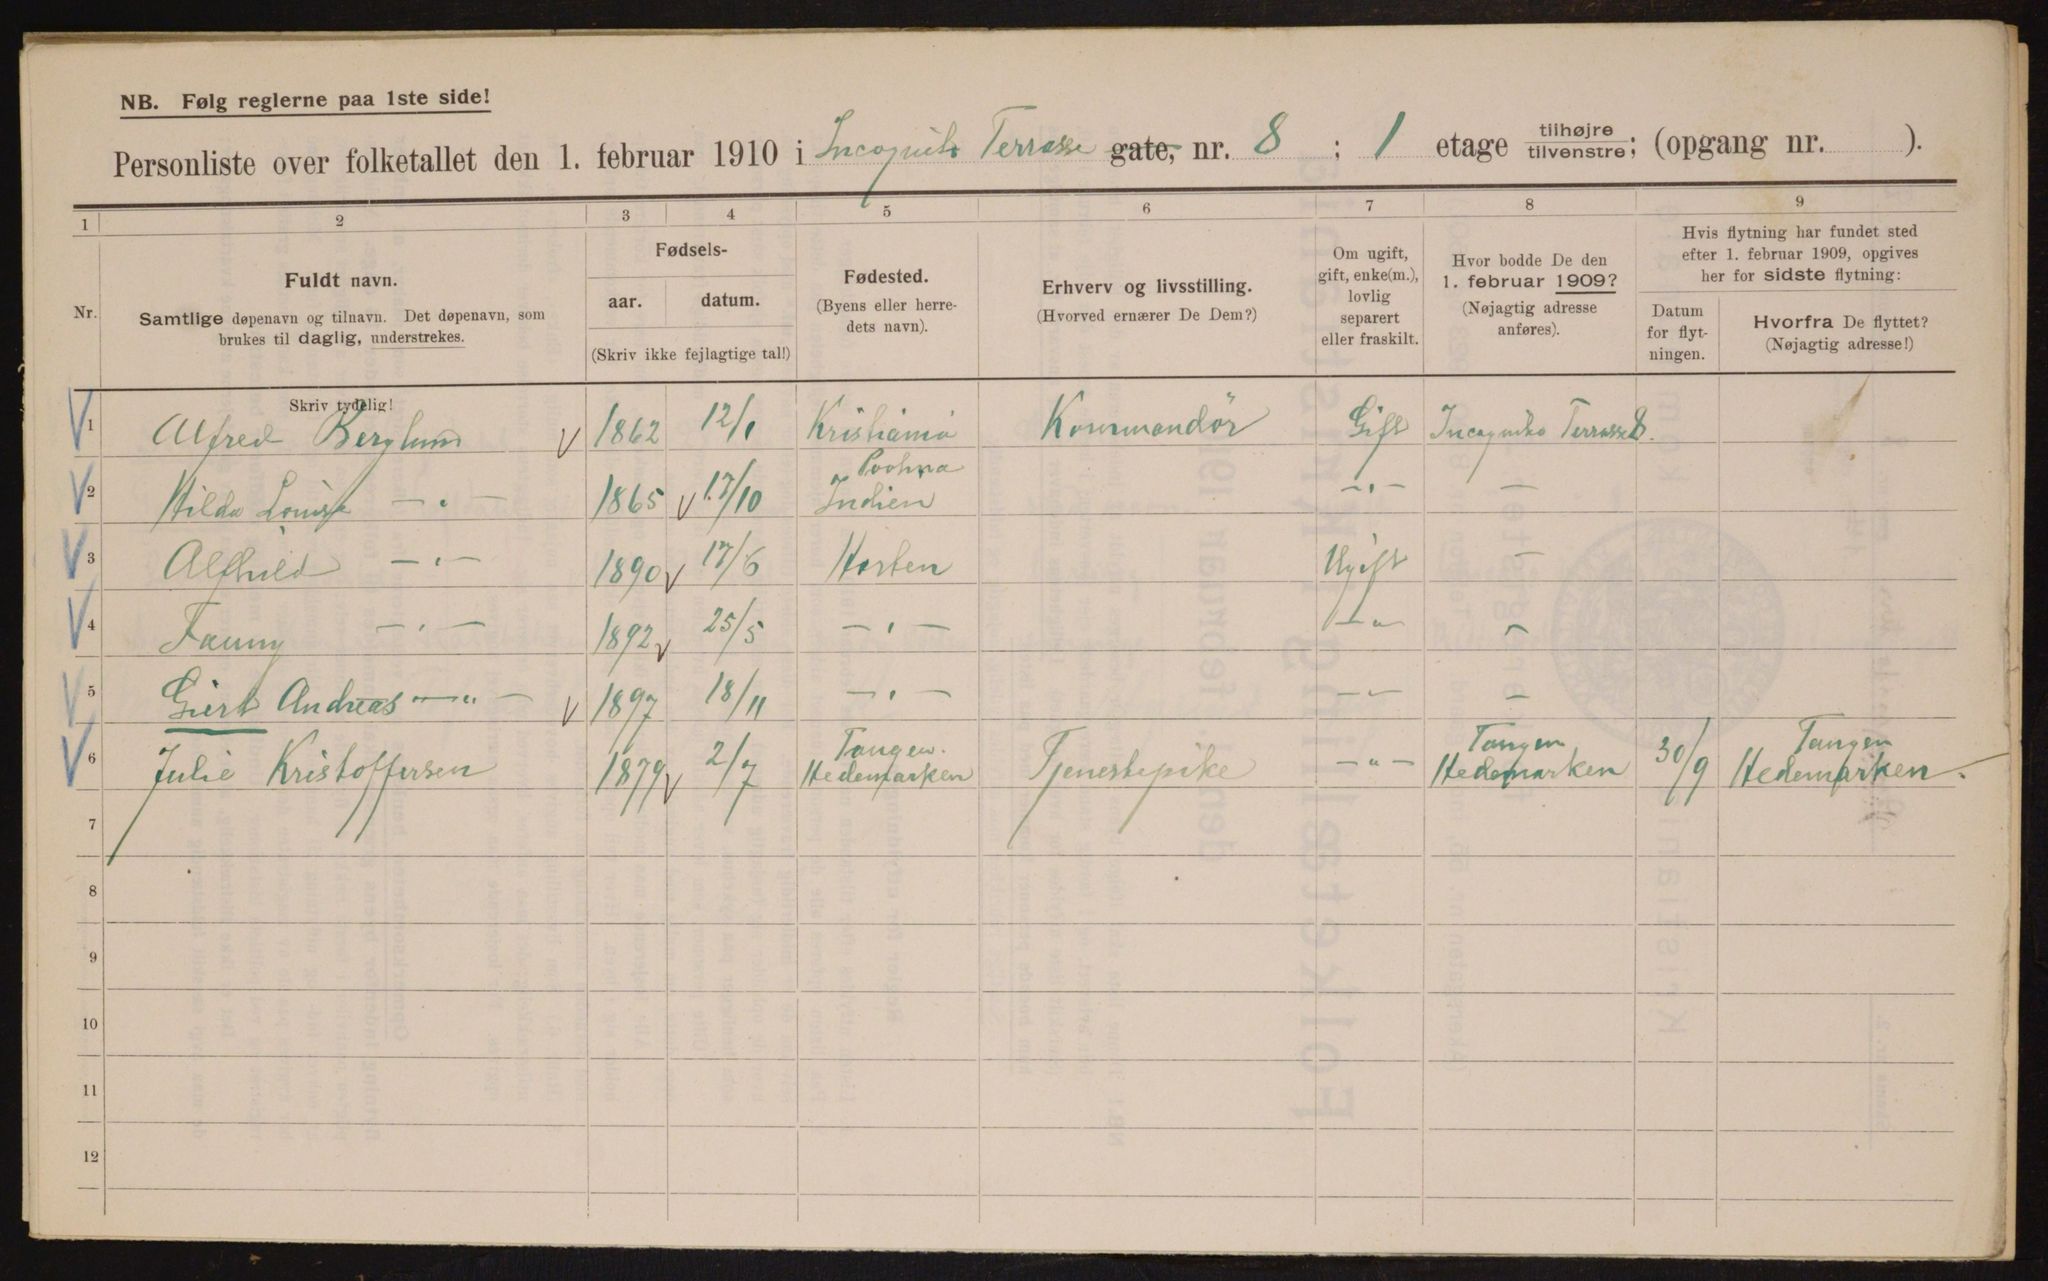 NB. Følg reglerne paa 1ste side!
Personliste over folketallet den 1. februar 1910 i Incognito Terrasse gate, nr. 8 ; 1 etage tilhøjre tilvenstre; (opgang nr. ).
1 2 3 4 5 6 7 8 9
Nr.
Fuldt navn.
Samtlige døpenavn og tilnavn. Det døpenavn, som
brukes til daglig, understrekes.
Fødsels-
aar. datum.
(Skriv ikke fejlagtige tal!)
Fødested.
(Byens eller herre-
dets navn).
Erhverv og livsstilling.
(Hvorved ernærer De Dem?)
Om ugift,
gift, enke(m.),
lovlig
separert
eller fraskilt.
Hvor bodde De den
1. februar 1909?
(Nøjagtig adresse
anføres).
Hvis flytning har fundet sted
efter 1. februar 1909, opgives
her for sidste flytning:
Datum
for flyt-
ningen.
Hvorfra De flyttet?
(Nøjagtig adresse!)
Skriv tydelig!
1 Alfred Berglund 1862 12/1 Kristiania Kommandör Gift Incognito Terrasse 8.
2 Hilda Louise —„— 1865 17/10 Poohna Indien —„— —
3 Alfhild —„— 1890 17/6 Horten Ugift —
4 Fanny —„— 1892 25/5 —„— —„— —
5 Giert Andreas —„— 1897 18/11 —„— —„— —
6 Julie Kristoffersen 1879 2/7 Tangen. Hedemarken Tjenestepike —„— Tangen Hedemarken 30/9 Tangen Hedemarken.
7
8
9
10
11
12